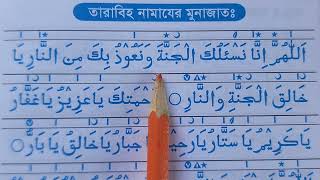 তারাবিহ নামাযের মুনাজাতঃ
اَللّٰهُمَّ اِنَّا نَسْئَلُكَ الْجَنَّةَ وَنَعُوْذُ بِكَ مِنَ النَّارِ يَا
خَالِقَ الْجَنَّةِ وَالنَّارِ ○ حْمَتِكَ يَا عَزِيْزُ يَا غَفَّارُ
يَا كَرِيْمُ يَا سَتَّارُ يَا رَحِيْمُ جَبَّارُ يَا خَالِقُ يَا بَارُّ ○